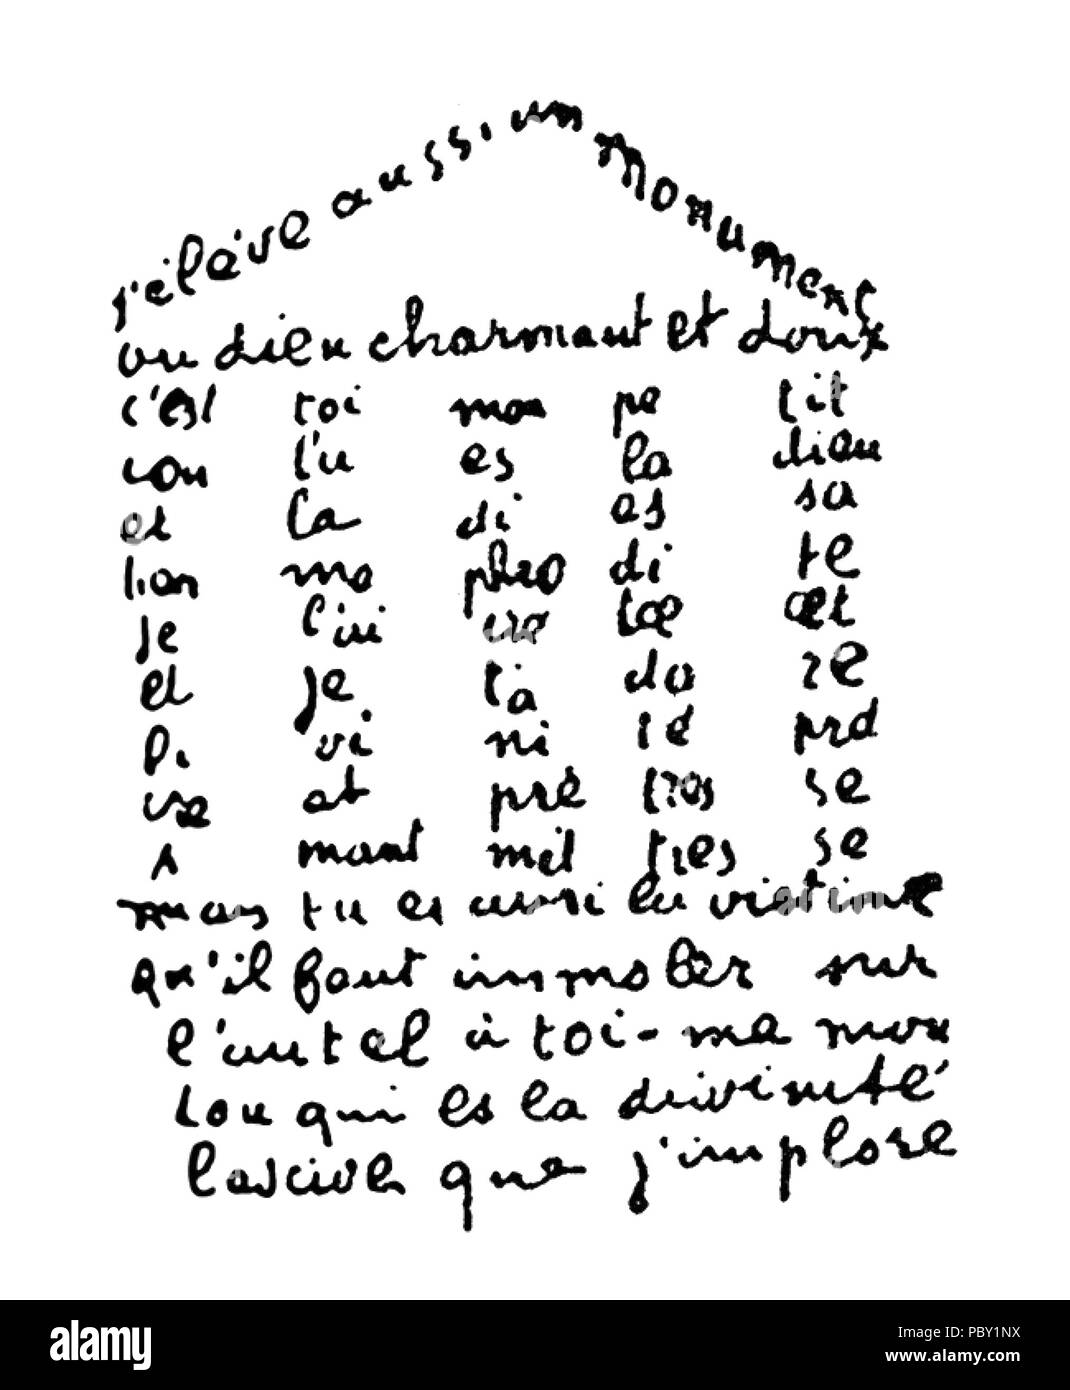 j'élève aussi un monument
au dieu charmant et doux
c'est toi mon pe tit
lou tu es la dieu
et la di es sa
lion mo phro di te
je l'in vo toe et
et je t'a do re
Di vi ni té pro
use at prê tres se
A mant mil tres se
mais tu es aussi la victime
qu'il faut immoler sur
l'autel à toi-même mon
Lou qui es la divinité
lascive que j'implore
alamy
alamy
Image ID: PBY1NX
www.alamy.com